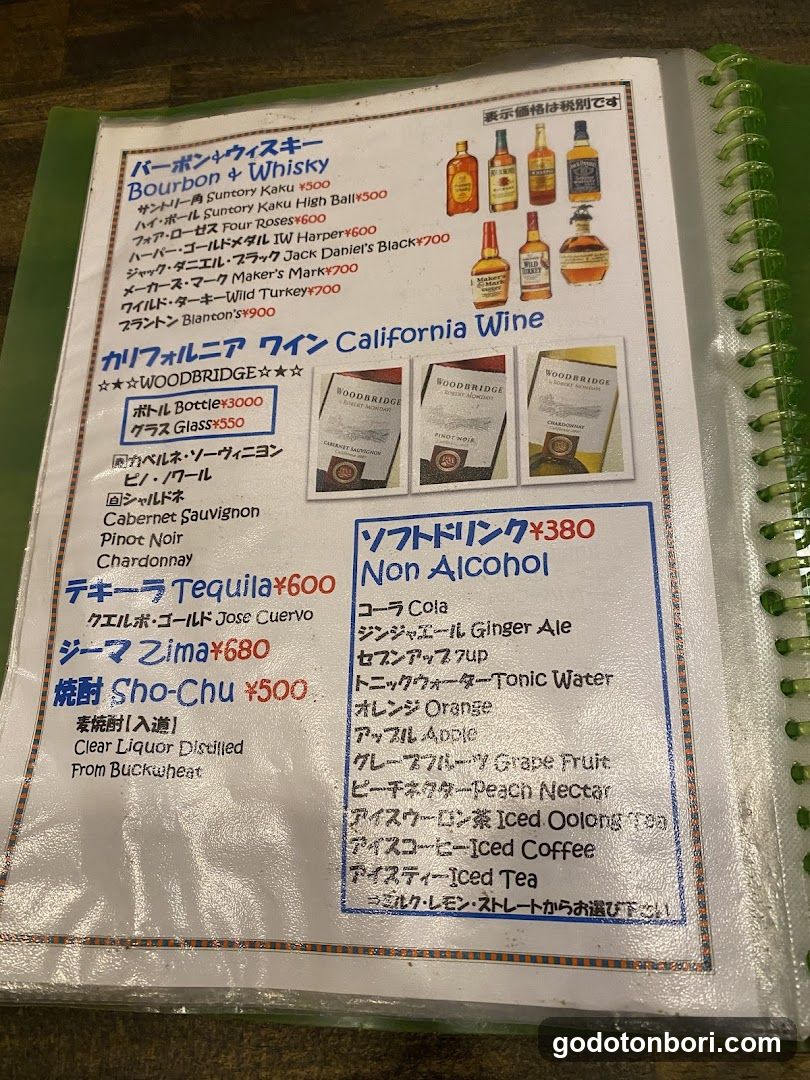 表示価格は税別です
バーボン&ウィスキー
Bourbon & Whisky
サントリー角 Suntory Kaku ¥500
ハイ・ボール Suntory Kaku High Ball¥500
フォア・ローゼス Four Roses¥600
ハーパー・ゴールドメダル IW Harper¥600
ジャック・ダニエル・ブラック Jack Daniel's Black¥700
メーカーズ・マーク Maker's Mark¥700
ワイルド・ターキーWild Turkey¥700
ブラントン Blanton's¥900
カリフォルニア ワイン California Wine
☆★☆WOODBRIDGE☆★☆
ボトル Bottle¥3000
グラス Glass¥550
WOODBRIDGE
BY ROBERT MONDAVI
CABERNET SAUVIGNON
WOODBRIDGE
BY ROBERT MONDAVI
PINOT NOIR
WOODBRIDGE
BY ROBERT MONDAVI
CHARDONNAY
赤カベルネ・ソーヴィニヨン
ピノ・ノワール
白シャルドネ
Cabernet Sauvignon
Pinot Noir
Chardonnay
テキーラ Tequila¥600
クエルボ・ゴールド Jose Cuervo
ジーマ Zima¥680
焼酎 Sho-Chu ¥500
麦焼酎【入道】
Clear Liquor Distilled
From Buckwheat
ソフトドリンク¥380
Non Alcohol
コーラ Cola
ジンジャエール Ginger Ale
セブンアップ 7up
トニックウォーターTonic Water
オレンジ Orange
アップル Apple
グレープフルーツ Grape Fruit
ピーチネクターPeach Nectar
アイスウーロン茶 Iced Oolong Tea
アイスコーヒーIced Coffee
アイスティーIced Tea
⇒ミルク・レモン・ストレートからお選び下さい
godotonbori.com